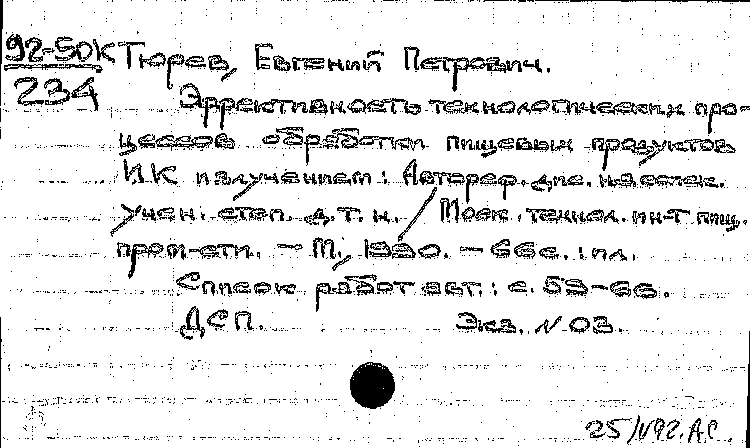 92-50К Тюрев, Евгений Петрович.
234
Эффективность технологических про-
цессов обработки пищевых продуктов
ИК излучением: Автореф. дис. на соиск.
учен. степ. д.т.н. / Моск. технол. ин-т пищ.
пром-сти. - М., 1990. - 66 с.: ил.
Список работ авт.: с. 59-66.
ДСП. Экз. N 03.
25/V92. А.С.